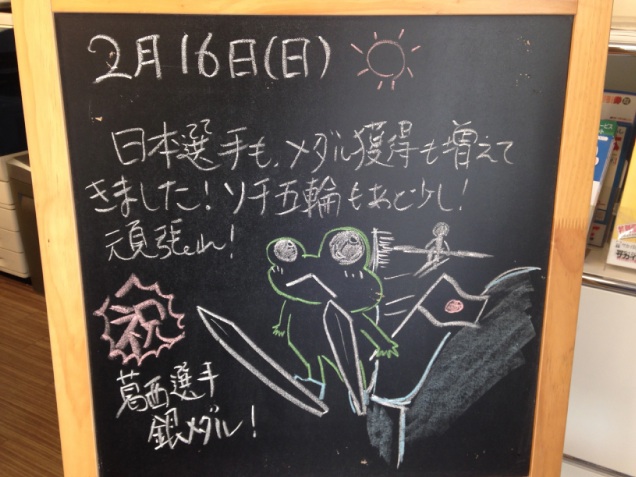 2月16日(日)
日本選手も、メダル獲得も増えて
きました!ソチ五輪もあと少し!
頑張れ!
祝
葛西選手
銀メダル!